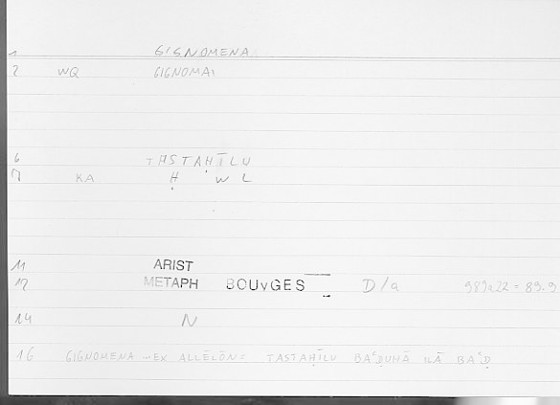 1 GIGNOMENA
2 WQ GIGNOMAI
6 TASTAḤĪLU
7 KA Ḥ W L
11 ARIST
12 METAPH BOUvGES D/a 989a22 = 89.9
14 N
16 GIGNOMENA - EX ALLĒLŌN = TASTAḤĪLU BAʿḌUHĀ ILĀ BAʿḌ